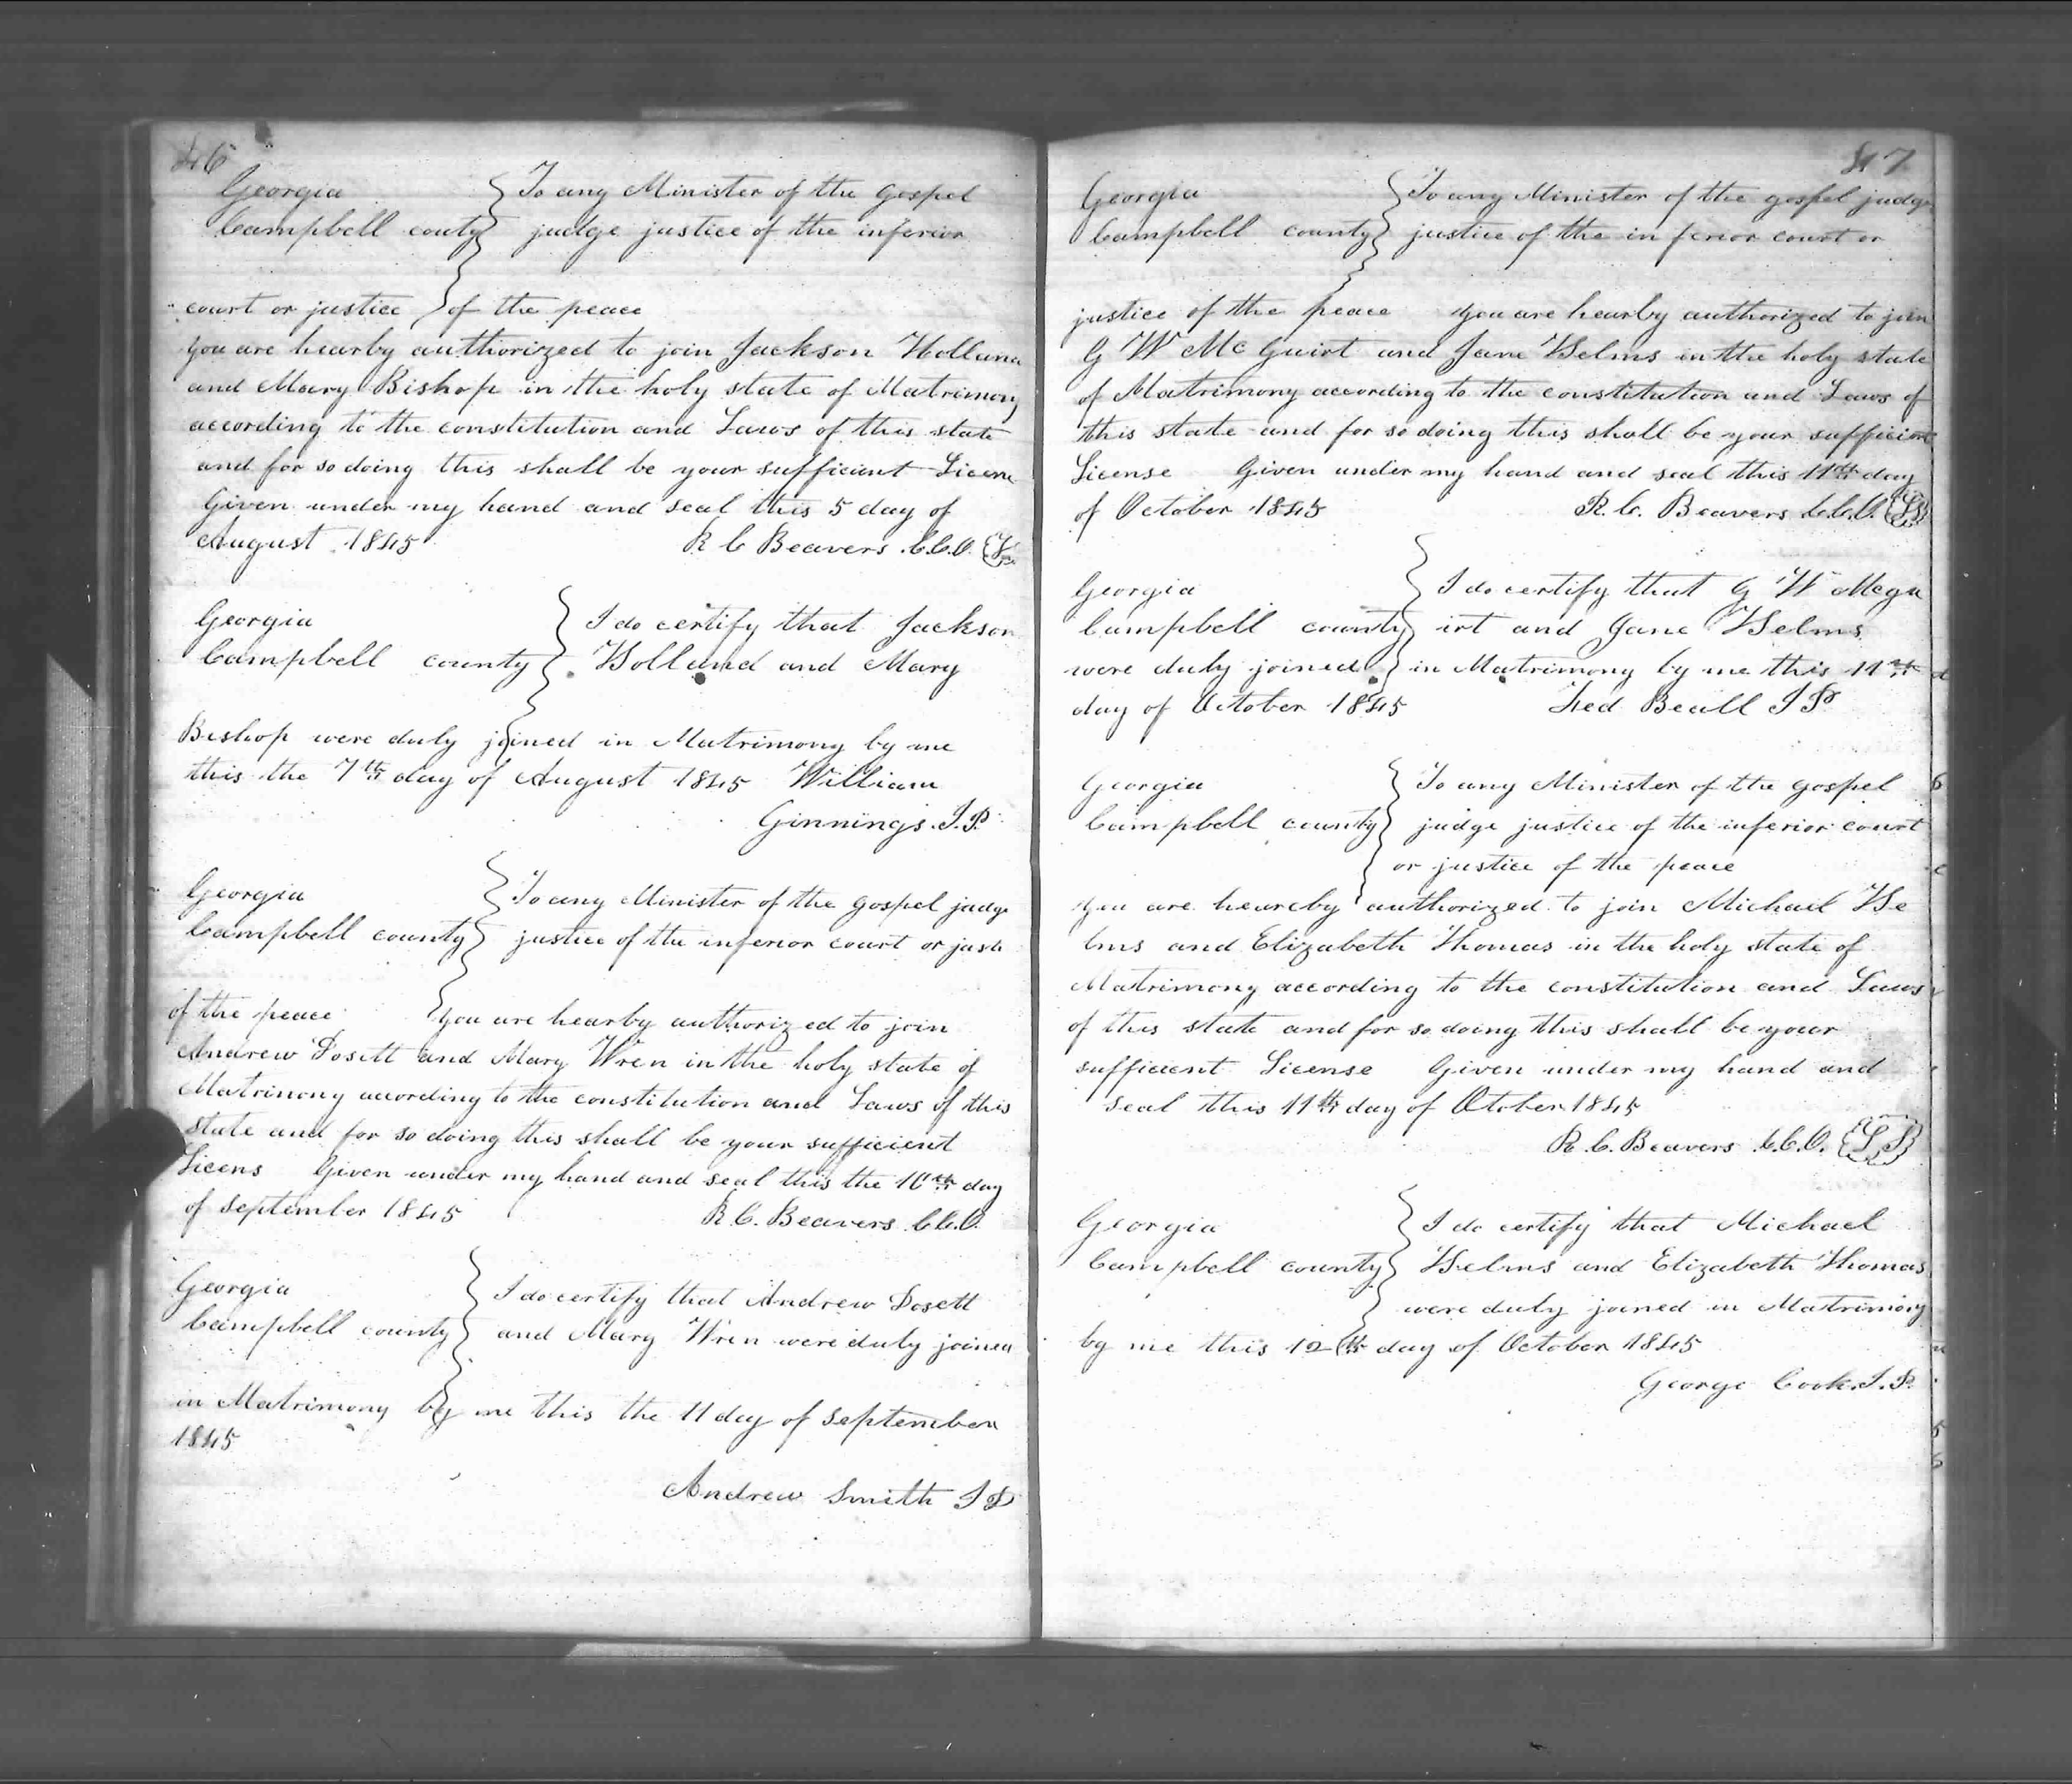 46
Georgia } To any Minister of the gospel
Campbell couty } judge justice of the inferior
court or justice } of the peace
you are hearby authorized to join Jackson Hollund
and Mary Bishop in the holy state of Matrimony
according to the constitution and Laws of this state
and for so doing this shall be your sufficient Licens
Given under my hand and seal this 5 day of
August 1845 R C Beavers C.C.O.
Georgia } I do certify that Jackson
Campbell county } Hollund and Mary
Bishop were duly joined in Matrimony by me
this the 7th day of August 1845 William
Ginnings J.P.
Georgia } To any Minister of the gospel judge
Campbell county } justice of the inferior court or justi
of the peace you are hearby authorized to join
Andrew Dosett and Mary Wren in the holy state of
Matrimony according to the constitution and Laws of this
state and for so doing this shall be your sufficient
Licens Given under my hand and seal this the 10th day
of september 1845 R. C. Beavers C.C.O.
Georgia } I do certify that Andrew Dosett
Campbell county } and Mary Wren were duly joined
in Matrimony by me this the 11 day of september
1845
Andrew Smith J P
47
Georgia } To any Minister of the gospel judge
Campbell county } justice of the in ferior court or
justice of the peace you are hearby authorized to join
G W Mc Guirt and Jane Helms in the holy state
of Matrimony according to the constitution and Laws of
this state and for so doing this shall be your sufficient
License Given under my hand and seal this 11th day
of October 1845 R. C. Beavers C.C.O. LS
Georgia } I do certify that G W Mcgu
Campbell county } irt and Jane Helms
were duly joined } in Matrimony by me this 11th
day of October 1845 Fred Beall J P
Georgia } To any Minister of the gospel
Campbell county } judge justice of the inferior court
or justice of the peace
you are heareby authorized to join Michael He
lms and Elizabeth Thomas in the holy state of
Matrimony according to the constitution and Laws
of this state and for so doing this shall be your
sufficient License Given under my hand and
seal this 11th day of Otober 1845
R. C. Beavers C.C.O. LS
Georgia } I do certify that Michael
Campbell county } Helms and Elizabeth Thomas
were duly joined in Matrimony
by me this 12th day of October 1845
George Cook J.P.